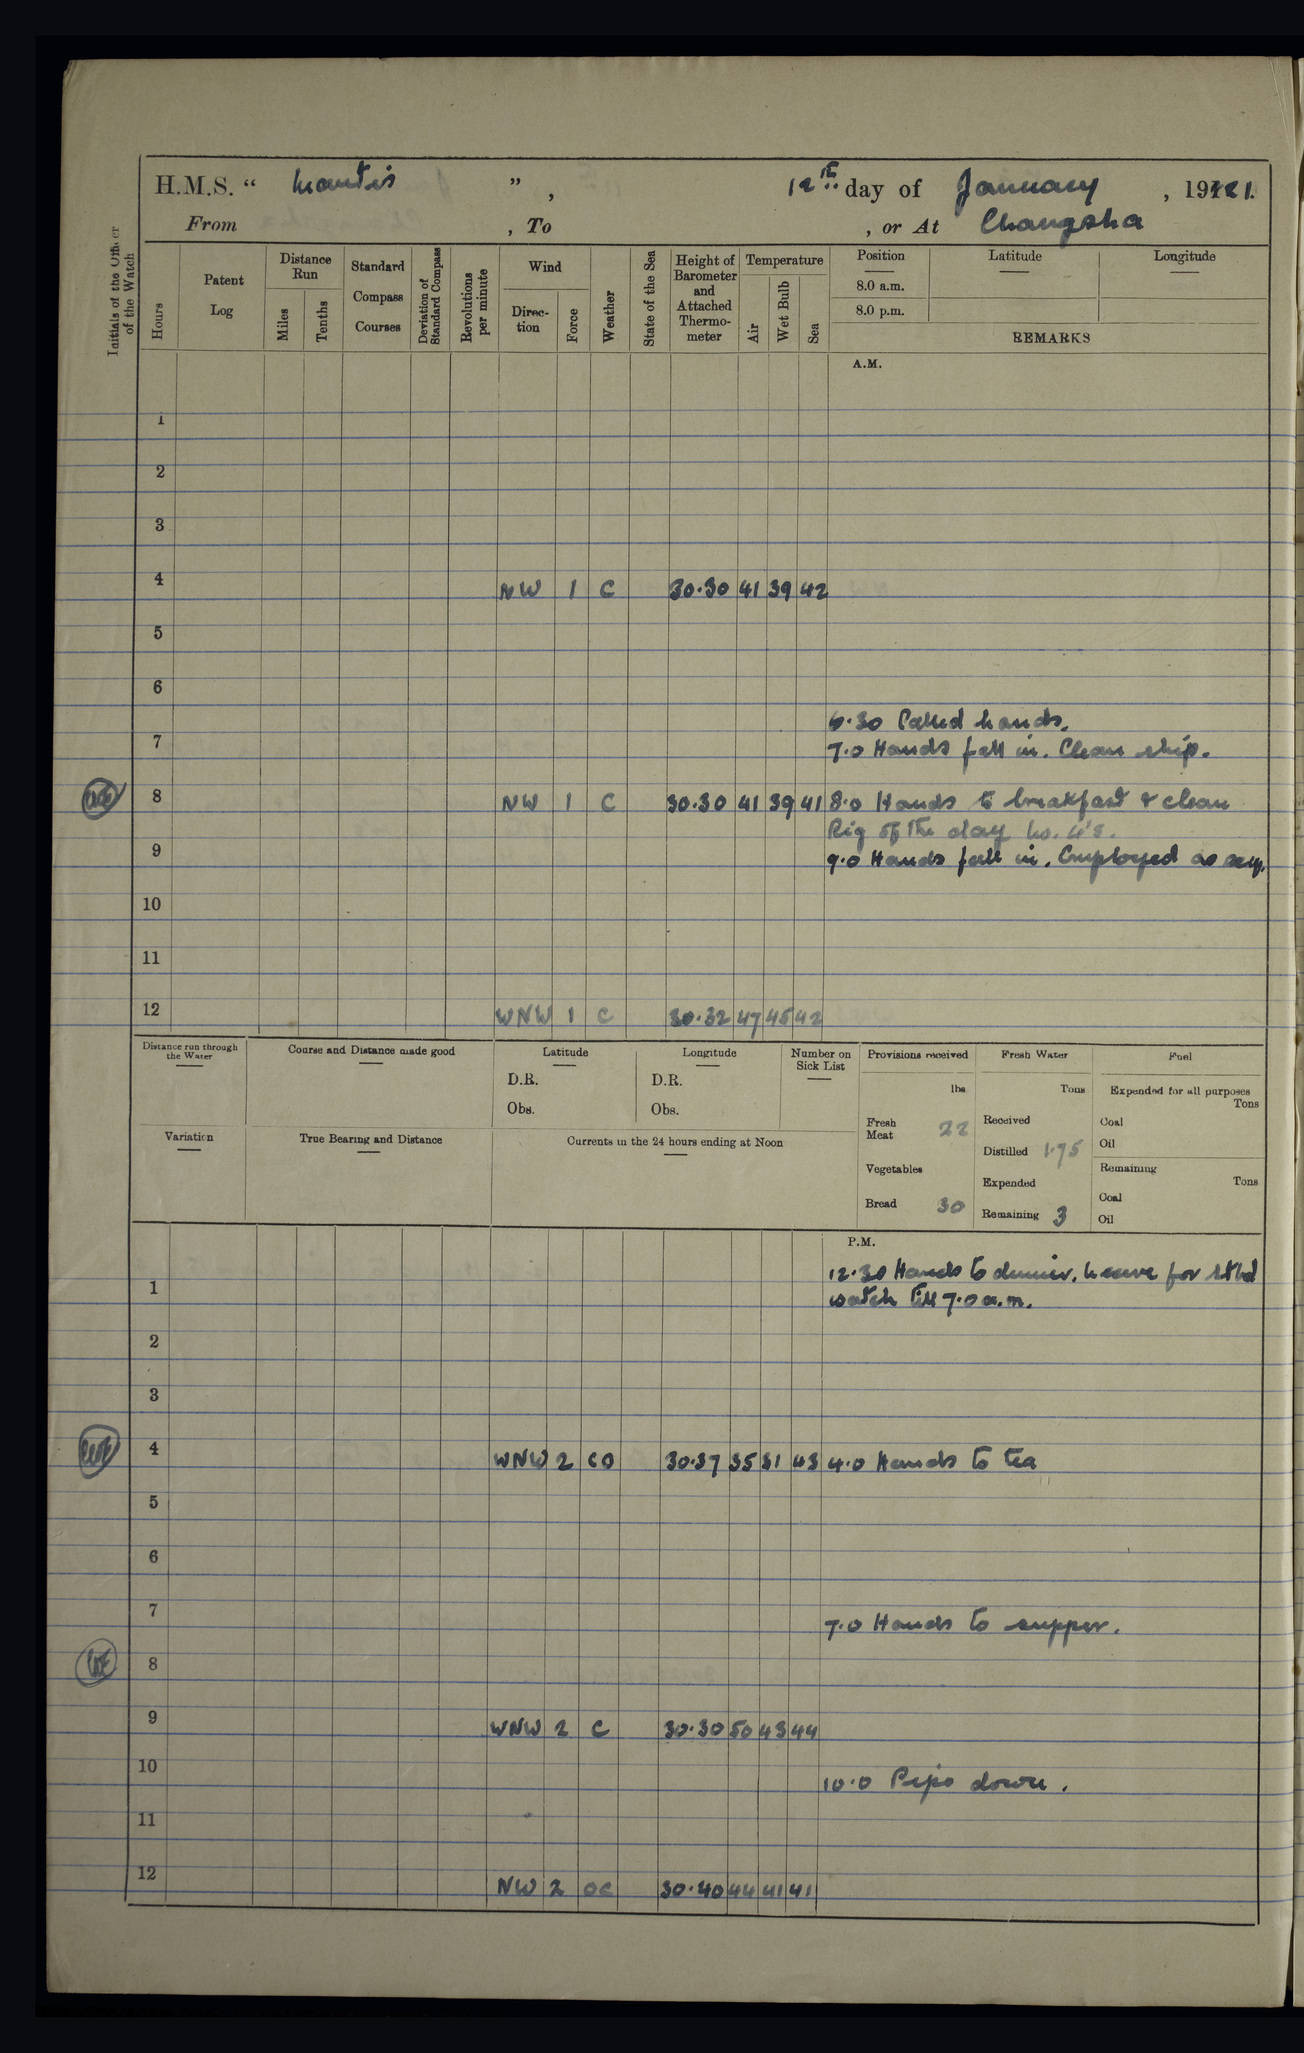 H.M.S. “ Mantis ”, 12th day of January, 1921.
From , To , or At Changsha
Initials of the Officer of the Watch
Hours
Patent Log
Distance Run
Miles
Tenths
Standard Compass Courses
Deviation of Standard Compass
Revolutions per minute
Wind
Direc-tion
Force
Weather
State of the Sea
Height of Barometer and Attached Thermo-meter
Temperature
Air
Wet Bulb
Sea
Position
8.0 a.m.
8.0 p.m.
Latitude
Longitude
REMARKS
A.M.
1
2
3
4 NW 1 C 30.30 41 39 42
5
6
6.30 Called hands.
7 7.0 Hands fell in. Clean ship.
8 NW 1 C 30.30 41 39 41 8.0 Hands to breakfast & clean
Rig of the day No. 4's.
9 9.0 Hands fell in. Employed as nec.
10
11
12 WNW 1 C 30.32 47 45 42
Distance run through the Water
Course and Distance made good
Latitude
D.R.
Obs.
Longitude
D.R.
Obs.
Number on Sick List
Provisions received
lbs
Fresh Meat 22
Vegetables
Bread 30
Fresh Water
Tons
Received
Distilled 1.75
Expended
Remaining 3
Fuel
Expended for all purposes
Tons
Coal
Oil
Remaining
Tons
Coal
Oil
Variation
True Bearing and Distance
Currents in the 24 hours ending at Noon
P.M.
12.30 Hands to dinner. Leave for stbd
1 watch till 7.0 a.m.
2
3
4 WNW 2 CO 30.37 35 31 43 4.0 Hands to tea
5
6
7 7.0 Hands to supper.
8
9 WNW 2 C 30.30 50 43 44
10 10.0 Pipe down.
11
12 NW 2 OC 30.40 44 41 41